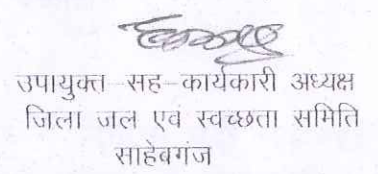 उपायुक्त–सह–कार्यकारी अध्यक्ष
जिला जल एव स्वच्छता समिति
साहेबगंज